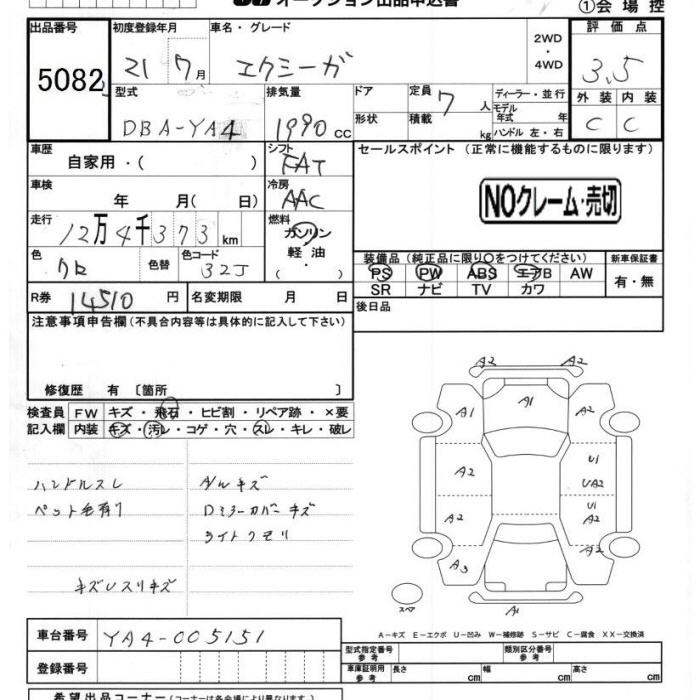 オークション出品申込書
①会場控
出品番号 初度登録年月 車名・グレード 2WD・4WD 評価点
5082 21 7月 エクシーガ 3.5
型式 排気量 ドア 定員 7人 ディーラー・並行 外装 内装
DBA-YA4 1990cc 形状 積載 kg モデル年式 年 ハンドル 左・右 C C
車歴 自家用・( ) シフト FAT セールスポイント (正常に機能するものに限ります)
車検 年 月( 日) 冷房 AAC NOクレーム・売切
走行 12万4千373km 燃料 ガソリン・軽油
色 クロ 色替 色コード 32J 装備品 (純正品に限り○をつけてください) 新車保証書
PS PW ABS エアB AW 有・無
SR ナビ TV カワ
R券 14510円 名変期限 月 日 後日品
注意事項申告欄(不具合内容等は具体的に記入して下さい)
修復歴 有 〔箇所 〕
検査員 FW キズ・飛石・ヒビ割・リペア跡・×要
記入欄 内装 キズ・汚レ・コゲ・穴・スレ・キレ・破レ
ハンドルスレ A/Wキズ
ペット毛有り Dミラーカバーキズ
ライトクモリ
キズUスリキズ
A2 A2
A1 A1 A2
A2 U1
UA2
A2 U1
A2
A3 A2
A1
スペア
A-キズ E-エクボ U-凹み W-補修跡 S-サビ C-腐食 XX-交換済
車台番号 YA4-005151
登録番号
型式指定番号 参考 類別区分番号 参考
車庫証明用 参考 長さ cm 幅 cm 高さ cm
希望出品コーナー(コーナーは各会場により異なります。)